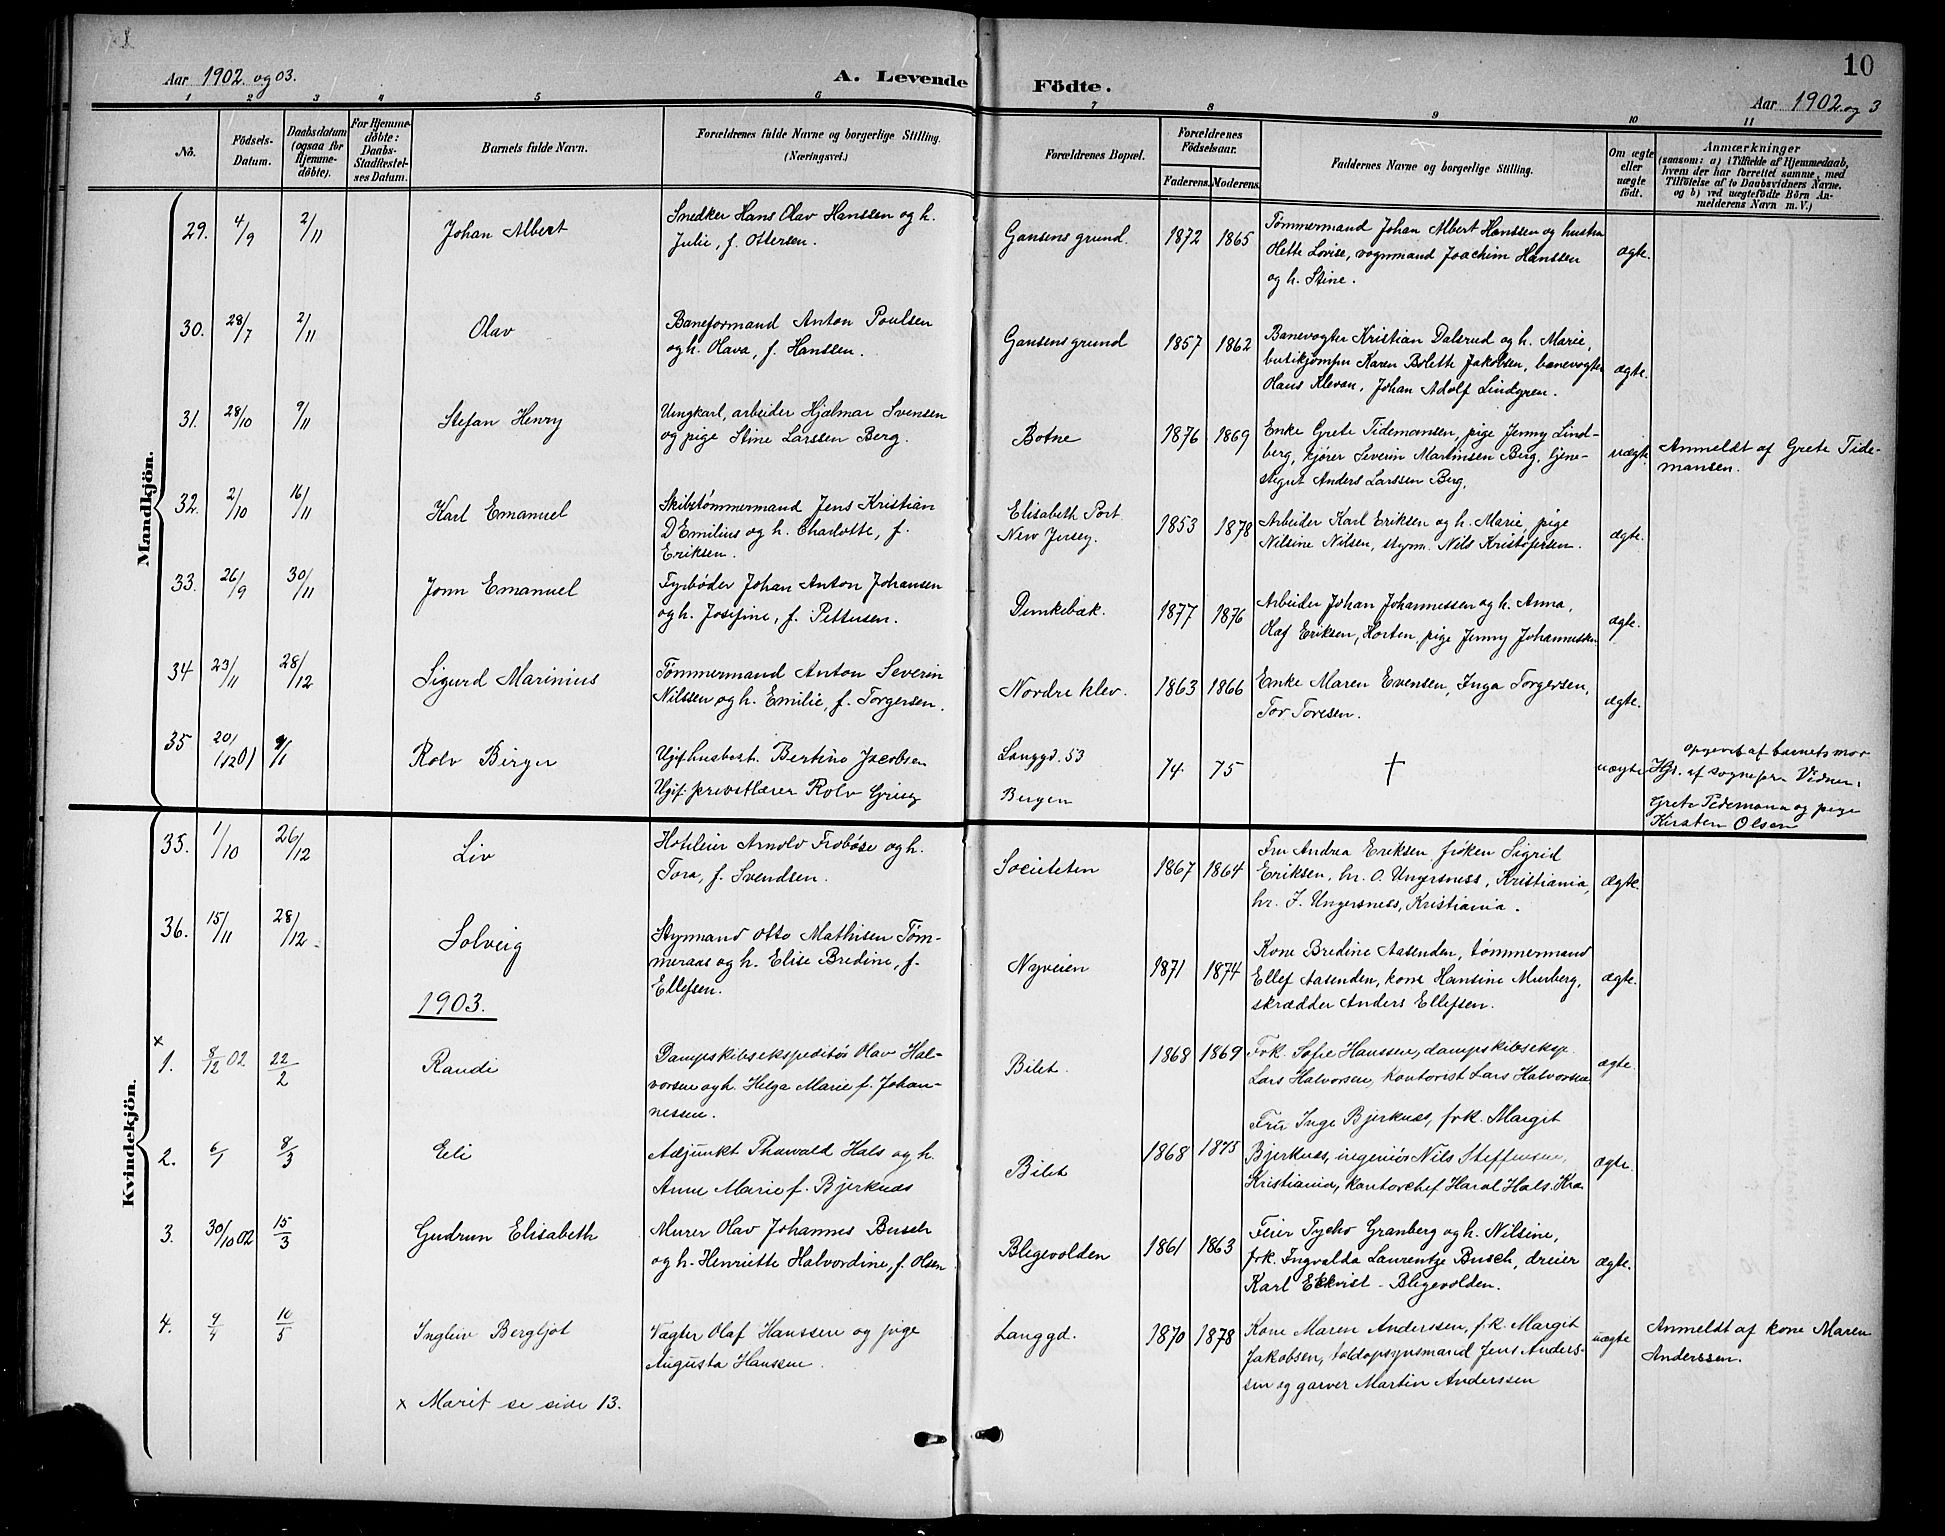 Aar 1902 og 03.
A. Levende Födte.
10
Aar 1902 og 3
1 2 3 4 5 6 7 8 9 10 11
No.
Födsels-Datum.
Daabsdatum (ogsaa for Hjemme-döbte).
For Hjemme-döbte: Daabs-Stadfæstel-ses Datum.
Barnets fulde Navn.
Forældrenes fulde Navne og borgerlige Stilling. (Næringsvei.)
Forældrenes Bopæl.
Forældrenes Födselsaar.
Faderens. Moderens.
Faddernes Navne og borgerlige Stilling.
Om ægte eller uægte födt.
Anmærkninger
(saasom: a) i Tilfælde af Hjemmedaab,
hvem der har forrettet samme, med
Tilföielse af to Daabsvidners Navne.
og b) ved uægtefödte Börn An-
melderens Navn m. V.)
Mandkjön.
29. 4/9 2/11 Johan Albert
Snedker Hans Olav Hanssen og h.
Julie, f. Ottersen.
Gansens grund. 1872 1865
Tømmermand Johan Albert Hanssen og hustru
Olette Lovise, vognmand Joachim Hanssen
og h. Stine.
ægte.
30. 28/7 2/11 Olav
Baneformand Anton Poulsen
og h. Olava, f. Hanssen.
Gansens grund 1857 1862
Banevogter Kristian Dalsrud og h. Marie,
butikjomfru Karen Bolette Jakobsen, banevogter
Hans Klevan, Johan Adolf Lindgren.
ægte.
31. 28/10 9/11 Stefan Henry
Ungkarl, arbeider Hjalmar Svensen
og pige Stine Larssen Berg.
Botne 1876 1869
Enke Grete Tidemansen, pige Jenny Lind-
berg, kjører Severin Martinsen Berg, tjene-
stegut Anders Larssen Berg.
uægte.
Anmeldt af Grete Tide-
mansen.
32. 2/10 16/11 Karl Emanuel
Skibstømmermand Jens Kristian
D'Emilius og h. Charlotte, f.
Eriksen.
Elisabeth Port
New Jersey.
1853 1878
Arbeider Karl Eriksen og h. Marie, pige
Nilsine Nilsen, styrm. Nils Kristofersen.
ægte.
33. 26/9 30/11 John Emanuel
Fyrbøder Johan Anton Johansen
og h. Josefine, f. Pettersen.
1877 1876
Arbeider Johan Johannessen og h. Anna,
Olaf Eriksen, Horten, pige Jenny Johannessen
ægte.
34 23/11 28/12 Sigurd Marinius
Tømmermand Anton Severin
Nilssen og h. Emilie, f. Torgersen.
Nordre klev. 1863 1866
Enke Maren Evensen, Inga Torgersen,
Tor Toresen.
ægte.
35 20/12 01 Rolv Birger
Ugift husbest. Bertine Jacobsen
Ugift privatlærer Rolv Grieg
Langgd. 53
Bergen
74. 75
†
uægte
opgevet af barnets mor
Hjd. af sognepr. Vidnes:
Grete Tidemann og pige
Kirsten Olsen
Kvindekjön.
35. 1/10 26/12 Liv
Hoteleier Arnold Frobøse og h.
Tora, f. Svendsen.
Societeten 1867 1864
Fru Andrea Eriksen, frøken Sigrid
Eriksen, hr. O. Ungersness, Kristiania,
hr. J. Ungersness, Kristiania.
ægte.
36. 15/11 28/12 Solveig
Styrmand Otto Mathisen Tøm-
meraas og h. Elise Bredine, f.
Ellefsen.
Nyveien 1871 1874
Kone Bredine Aasenden, tømmermand
Ellef Aasenden, kone Hansine Murberg,
skrædder Anders Ellefsen.
ægte.
1903.
x
1. 8/12 02 22/2 Randi
Dampskibsekspeditør Olav Hal-
vorsen og h. Helga Marie f. Johan-
nessen.
Bilet. 1868 1869
Frk. Sofie Hanssen, dampskibseksp.
Lars Halvorsen, kontorist Lars Halvorsen
ægte.
2. 6/1 8/3 Eli
Adjunkt Thorvald Hals og h.
Anne Marie f. Bjerknæs
Bilet 1868 1875
Fru Inge Bjerknæs, frk. Margit
Bjerknæs, ingeniør Nils Steffensen,
Kristiania, kontorchef Haral Hals. Kra.
ægte.
3. 30/10 02 15/3 Gudrun Elisabeth
Murer Olav Johannes Busch
og h. Henriette Halvordine, f. Olsen
Blegevolden 1861 1863
Feier Tycho Granberg og h. Nilsine,
frk. Ingvalda Laurentze Busch, dreier
Karl Eckvist - Blegevolden.
ægte.
4. 9/4 10/5 Ingleiv Bergljot
Vægter Olaf Hanssen og pige
Augusta Hansen.
Langgd. 1870 1878
Kone Maren Anderssen, frk. Margit
Jakobsen, toldopsynsmand Jens Anders-
sen og garver Martin Anderssen
uægte
Anmeldt af kone Maren
Anderssen.
x Marit se side 13.